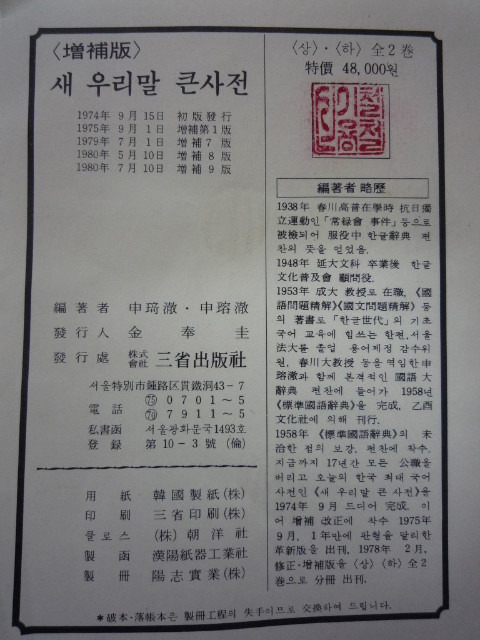 〈增補版〉
새 우리말 큰사전
1974年 9月 15日 初版發行
1975年 9月 1日 增補第1版
1979年 7月 1日 增補 7 版
1980年 5月 10日 增補 8 版
1980年 7月 10日 增補 9 版
編著者 申琦澈・申瑢澈
發行人 金奉圭
發行處 株式會社 三省出版社
서울特別市鍾路区貫鐵洞43-7
電話 ㉕ 0701~5
⑳ 7911~5
私書函 서울광화문국1493호
登錄 第10-3號(倫)
用紙 韓國製紙(株)
印刷 三省印刷(株)
클로스 (株)朝洋社
製函 漢陽紙器工業社
製冊 陽志實業(株)
〈상〉·〈하〉全2巻
特價 48,000원
編著者 略歷
1938年 春川高普在學時 抗日獨
立運動인「常緑會 事件」등으로
被檢되어 服役中 한글辭典 편
찬의 뜻을 얻었음.
1948年 延大文科 卒業後 한글
文化普及會 顧問役.
1953年 成大 敎授로 在職,《國
語問題精解》《國文問題精解》등
의 著書로「한글世代」의 기초
국어 교육에 힘쓰는 한편,서울
法大를 졸업 용어제정 감수위
원, 春川大敎授 등을 역임한 申
瑢澈과 함께 본격적인 國語 大
辭典 편찬에 들어가 1958년
《標準國語辭典》을 完成, 乙酉
文化社에 依해 刊行.
1958年《標準國語辭典》의 未
洽한 점의 보강, 편찬에 착수.
지금까지 17년간 모든 公職을
버리고 오늘의 한국 최대 국어
사전인《새 우리말 큰 사전》을
1974年 9月 드디어 完成. 이
어 增補 改正에 착수 1975年
9月, 1年만에 판형을 달리한
革新版을 出刊, 1978年 2月,
修正·增補版을〈상〉〈하〉全2
巻으로 分冊 出刊.
*破本·落帳本은 製冊工程의 失手이므로 交換하여 드립니다.